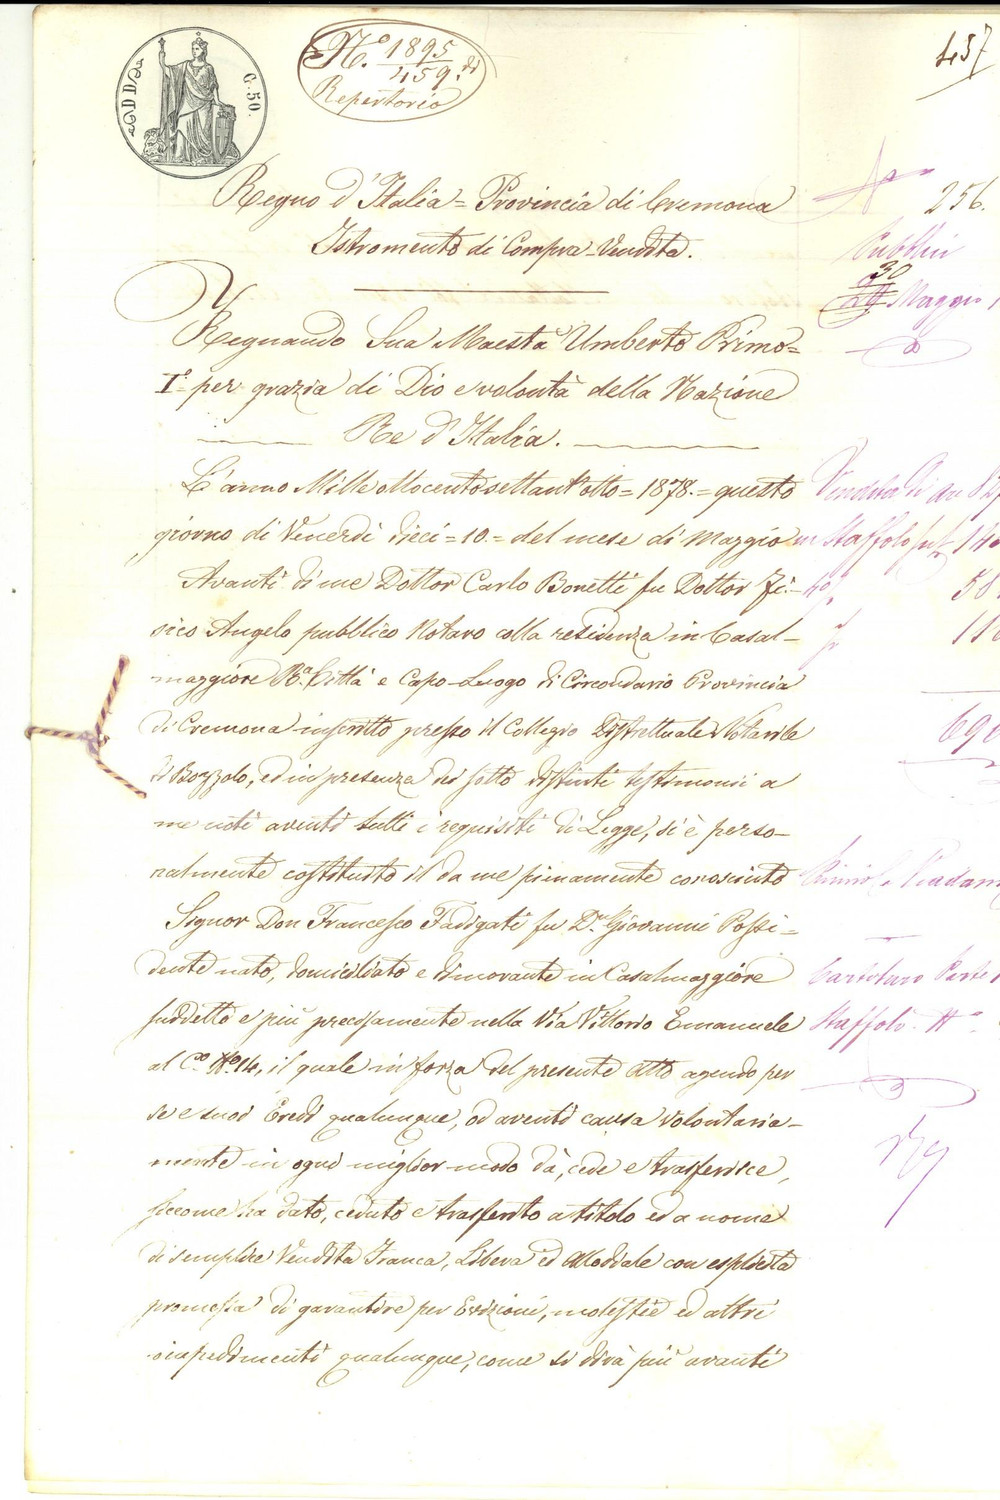 C. 50.
N.° 1895
459 di
Repertorio
457
Regno d'Italia = Provincia di Cremona
Istromento di Compra-Vendita.
N° 256.
Pubblici
30
Maggio
Regnando Sua Maestà Umberto Primo=
I°= per grazia di Dio e volontà della Nazione
Re d'Italia.
L'anno Mille ottocento settant'otto = 1878. = questo
giorno di Venerdì dieci = 10. = del mese di Maggio
Avanti di me Dottor Carlo Bonetti fu Dottor Fi-
sico Angelo pubblico Notaro colla residenza in Casal-
maggiore R.a Città e Capo-Luogo di Circondario Provincia
di Cremona inscritto presso il Collegio Distrettuale Notarile
di Bozzolo, ed in presenza dei sotto distinti testimonii a
me noti aventi tutti i requisiti di Legge, si è perso-
nalmente costituito il da me pienamente conosciuto
Signor Don Francesco Fadigati fu D.r Giovanni Possi=
dente nato, domiciliato e dimorante in Casalmaggiore
suddetto e più precisamente nella Via Vittorio Emanuele
al C.o N.o 14, il quale in forza del presente atto agendo per
se e suoi Eredi qualunque, od aventi causa volontaria-
mente in ogni miglior modo dà, cede e trasferisce,
siccome ha dato, ceduto e trasferito a titolo ed a nome
di semplice Vendita Franca, Libera ed Allodiale con esplicita
promessa di garantire per Evizioni, molestie ed altri
impedimenti qualunque, come si dirà più avanti
in Staffolo
690
Viadana
Staffolo N°